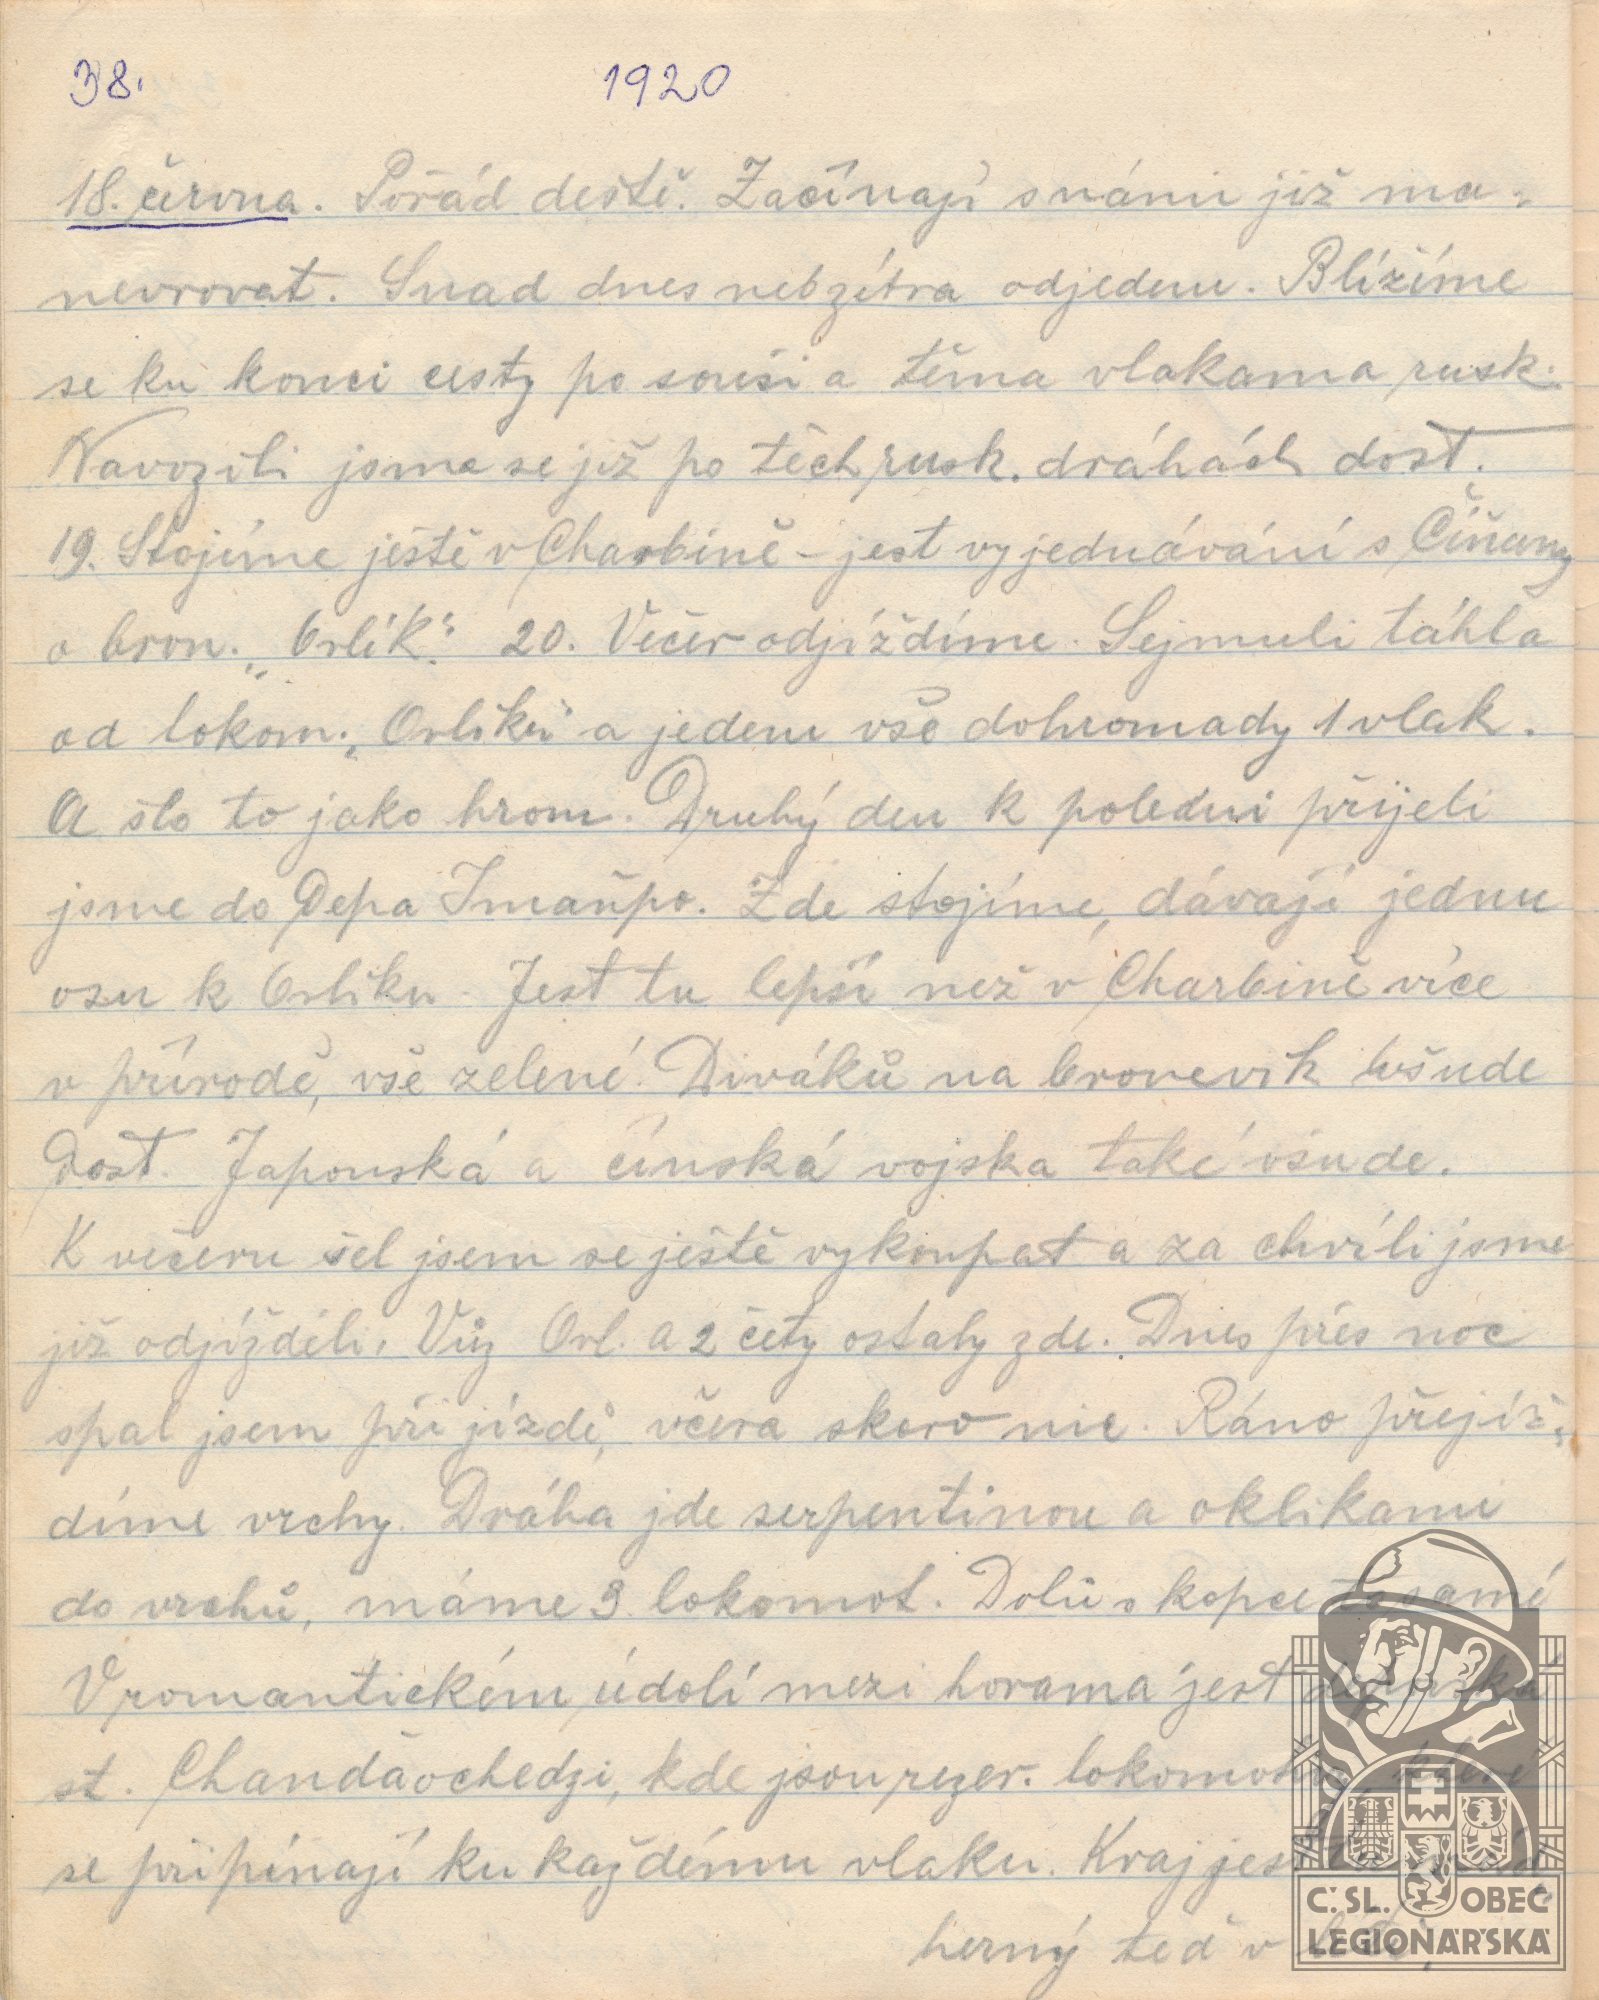 38. 1920
18. června. Pořád deště. Začínají s námi již ma-
nevrovat. Snad dnes neb zítra odjedem. Blížíme
se ku konci cesty po souši a těma vlakama rusk.
Navozili jsme se již po těch rusk. dráhách dost.
19. Stojíme ještě v Charbině – jest vyjednávání s Číňany
o bron. „Orlík". 20. Večer odjíždíme. Sejmuli táhla
od lokom. „Orlíku" a jedem vše dohromady 1 vlak.
A šlo to jako hrom. Druhý den k polednu přijeli
jsme do Depa Imaňpo. Zde stojíme, dávají jednu
osu k Orlíku. Jest tu lepší než v Charbině více
v přírodě, vše zelené. Diváků na bronevik všude
dost. Japonská a čínská vojska také všude.
K večeru šel jsem se ještě vykoupat a za chvíli jsme
již odjížděli. Vůz Orl. a 2 čety ostaly zde. Dnes přes noc
spal jsem při jízdě, včera skoro nic. Ráno přejíž-
díme vrchy. Dráha jde serpentinou a oklikami
do vrchů, máme 3 lokomot. Dolů s kopce to samé
V romantickém údolí mezi horama jest
st. Chandaochedzi, kde jsou rezer. lokomotivy které
se připínají ku každému vlaku. Kraj jest
herný teď v
Č. SL. OBEC
LEGIONÁŘSKÁ